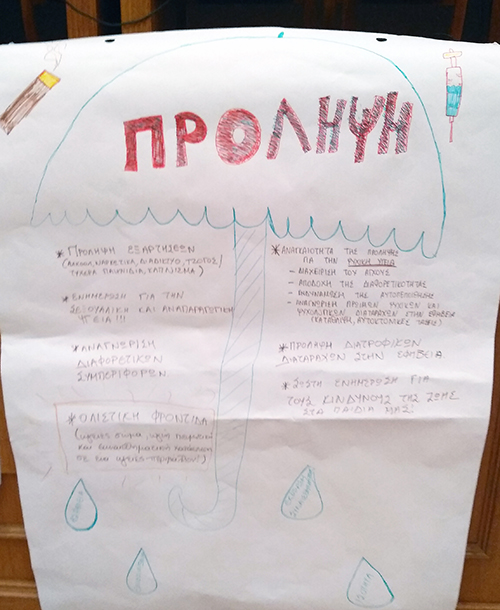 ΠΡΟΛΗΨΗ
* ΠΡΟΛΗΨΗ ΕΞΑΡΤΗΣΕΩΝ
(ΑΛΚΟΟΛ, ΝΑΡΚΩΤΙΚΑ, ΔΙΑΔΙΚΤΥΟ, ΤΖΟΓΟΣ/
ΤΥΧΕΡΑ ΠΑΙΧΝΙΔΙΑ, ΚΑΠΝΙΣΜΑ)
* ΕΝΗΜΕΡΩΣΗ ΓΙΑ ΤΗΝ
ΣΕΞΟΥΑΛΙΚΗ ΚΑΙ ΑΝΑΠΑΡΑΓΩΓΙΚΗ
ΥΓΕΙΑ !!!
* ΑΝΑΓΝΩΡΙΣΗ
ΔΙΑΦΟΡΕΤΙΚΩΝ
ΣΥΜΠΕΡΙΦΟΡΩΝ
* ΟΛΙΣΤΙΚΗ ΦΡΟΝΤΙΔΑ
(υγιές σώμα, υγιή
και συναισθηματική κατάσταση
σε ένα υγιές περιβάλλον)
* ΑΝΑΓΚΑΙΟΤΗΤΑ ΤΗΣ ΠΡΟΛΗΨΗΣ
ΓΙΑ ΤΗΝ ΨΥΧΙΚΗ ΥΓΕΙΑ
- ΔΙΑΧΕΙΡΙΣΗ ΤΟΥ ΑΓΧΟΥΣ
- ΑΠΟΔΟΧΗ ΤΗΣ ΔΙΑΦΟΡΕΤΙΚΟΤΗΤΑΣ
- ΕΝΔΥΝΑΜΩΣΗ ΤΗΣ ΑΥΤΟΠΕΠΟΙΘΗΣΗΣ
- ΑΝΑΓΝΩΡΙΣΗ ΠΡΩΙΜΩΝ ΨΥΧΙΚΩΝ ΚΑΙ
ΨΥΧΟΛΟΓΙΚΩΝ ΔΙΑΤΑΡΑΧΩΝ ΣΤΗΝ ΕΦΗΒΕΙΑ
(ΚΑΤΑΘΛΙΨΗ, ΑΥΤΟΚΤΟΝΙΚΕΣ ΤΑΣΕΙΣ)
* ΠΡΟΛΗΨΗ ΔΙΑΤΡΟΦΙΚΩΝ
ΔΙΑΤΑΡΑΧΩΝ ΣΤΗΝ ΕΦΗΒΕΙΑ
* ΣΩΣΤΗ ΕΝΗΜΕΡΩΣΗ ΓΙΑ
ΤΟΥΣ ΚΙΝΔΥΝΟΥΣ ΤΗΣ ΖΩΗΣ
ΣΤΑ ΠΑΙΔΙΑ ΜΑΣ!